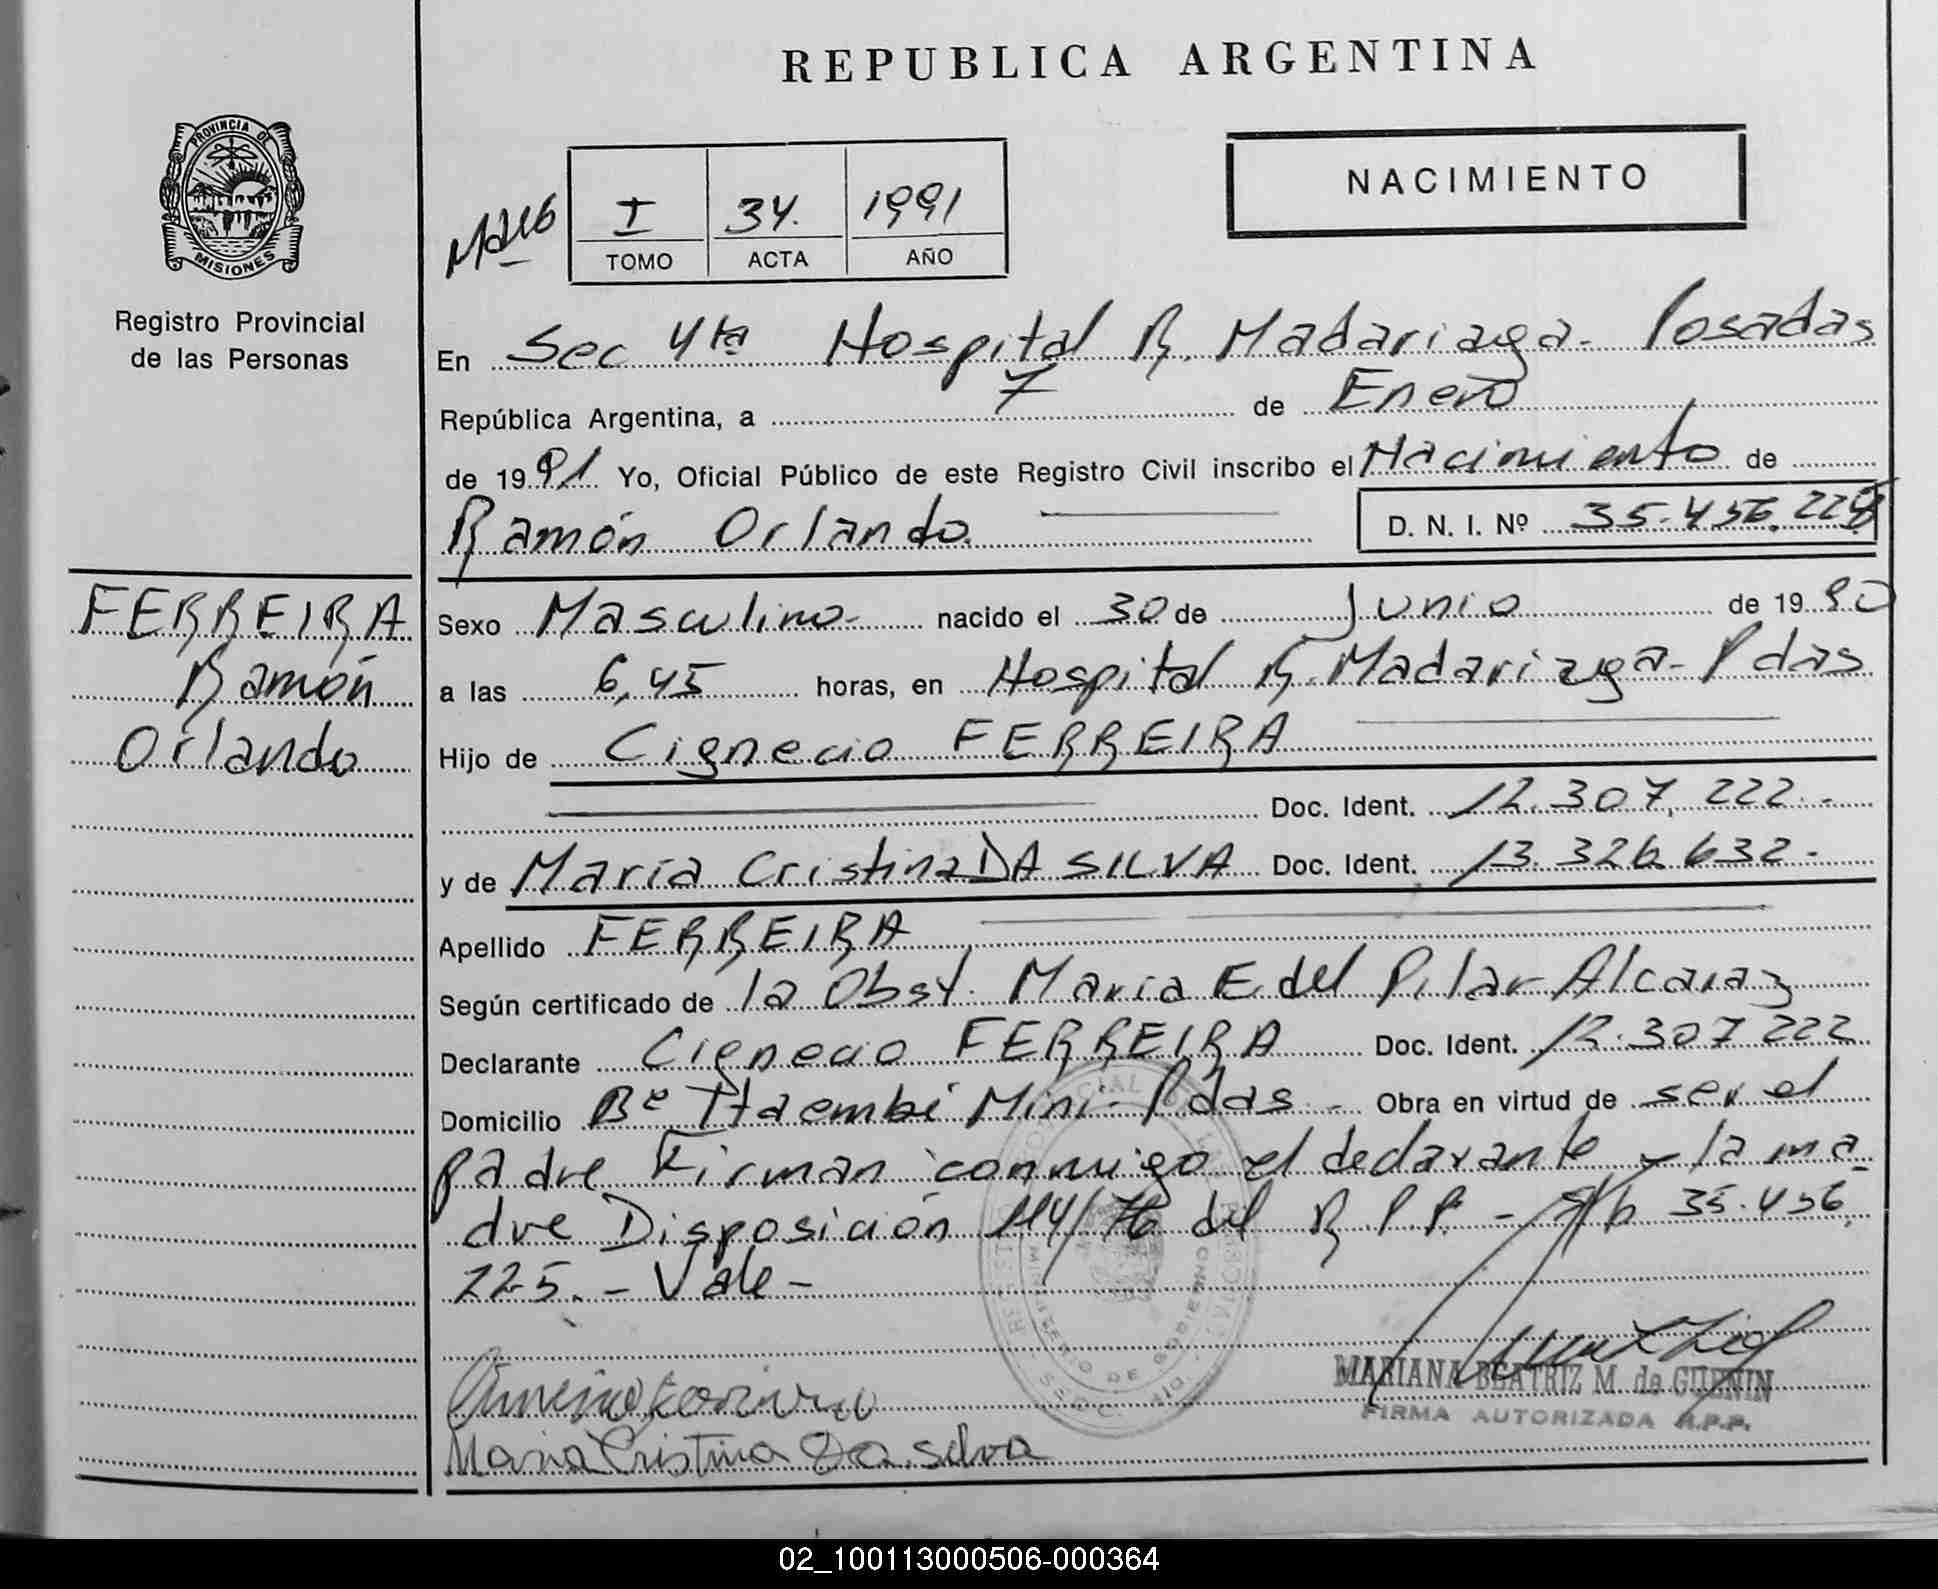 REPUBLICA ARGENTINA
PROVINCIA DE
MISIONES
Registro Provincial
de las Personas
NACIMIENTO
I 34. 1991
TOMO ACTA AÑO
En Sec 4ta Hospital R. Madariaga - Posadas
República Argentina, a 7 de Enero
de 1991 Yo, Oficial Público de este Registro Civil inscribo el Nacimiento de
Ramón Orlando. D. N. I. Nº 35.456.225
FERREIRA
Ramón
Orlando
Sexo Masculino - nacido el 30 de Junio de 1990
a las 6,45 horas, en Hospital R. Madariaga - Pdas
Hijo de Cignecio FERREIRA
Doc. Ident. 12.307.222.-
y de María Cristina DA SILVA Doc. Ident. 13.326.632.-
Apellido FERREIRA
Según certificado de la Obst. María E. del Pilar Alcaraz
Declarante Cignecio FERREIRA Doc. Ident. 12.307.222
Domicilio Bº Itaembé Mini - Pdas - Obra en virtud de ser el
padre Firman conmigo el declarante y la ma-
dre Disposición 114/76 del R.P.P. - S/b 35.456.
225. - Vale -
Maria Cristina Da silva
MARIANA BEATRIZ M. de GUENIN
FIRMA AUTORIZADA R.P.P.
02_100113000506-000364